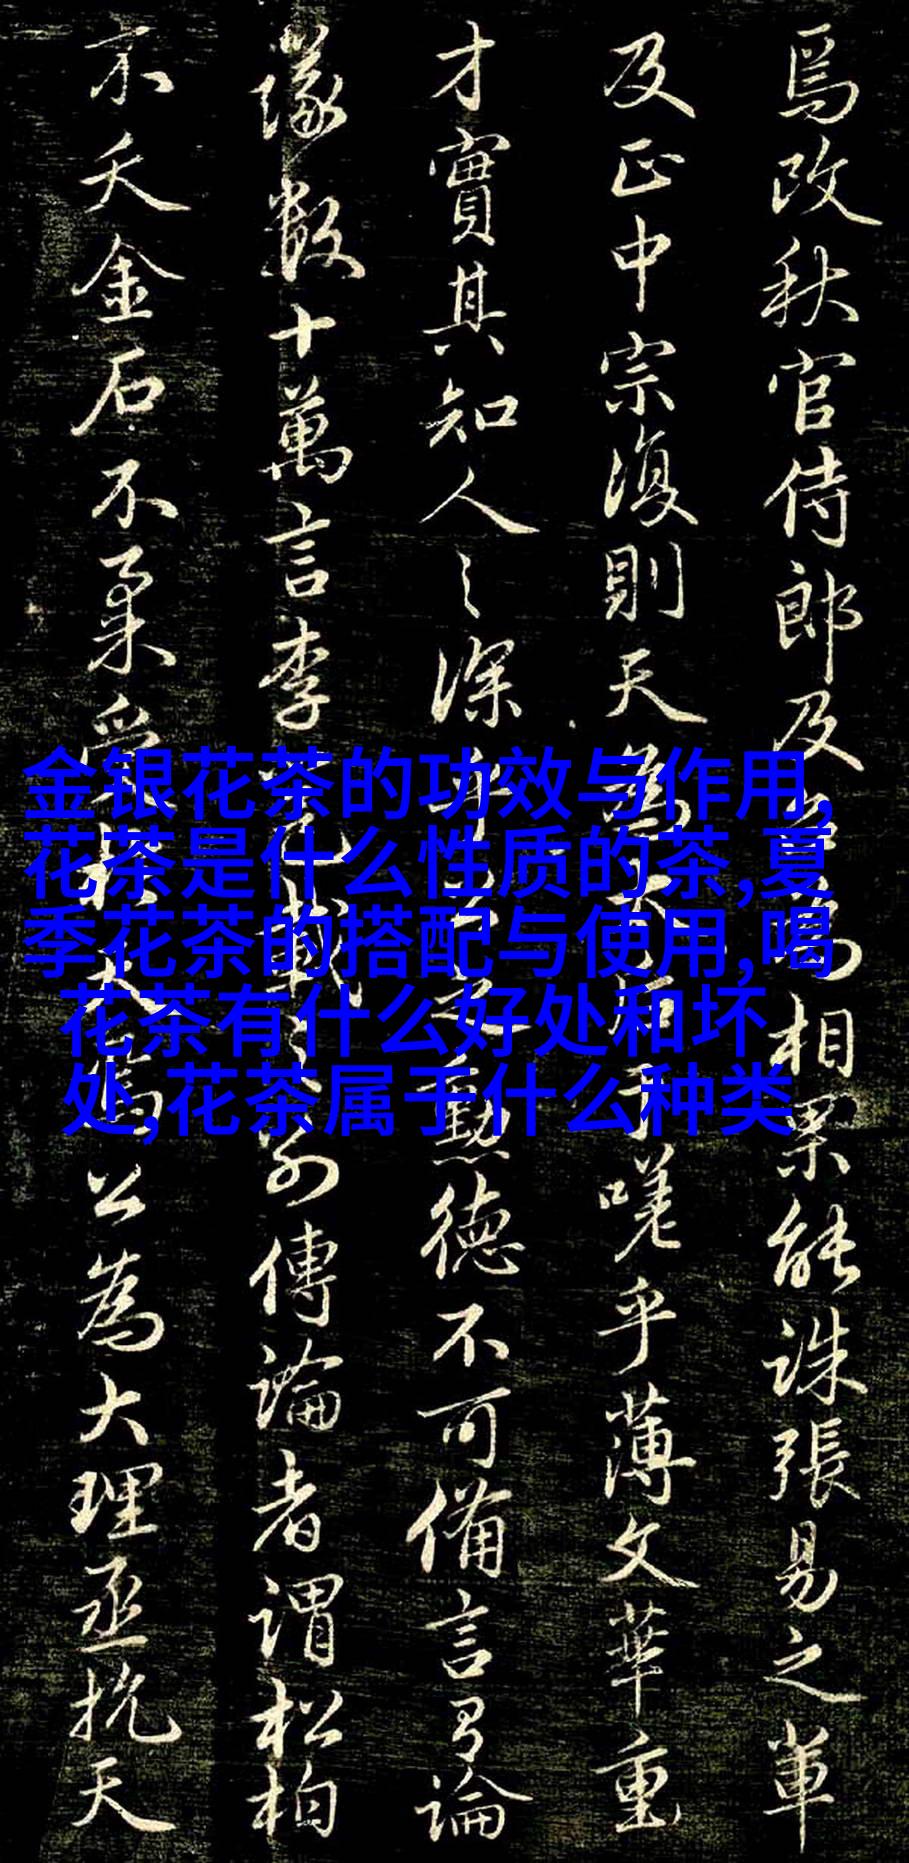 焉改秋官侍郎及為相果能誅張易之輩
及正中宗復則天為于嗟乎薄文華重
才實其知人之深勳德不可備言有論
議數十萬言李載別傳論者謂松柏
不夭金石不柔受天焉公為大理丞抗天
金银花茶的功效与作用,
花茶是什么性质的茶,夏
季花茶的搭配与使用,喝
花茶有什么好处和坏
处,花茶属于什么种类